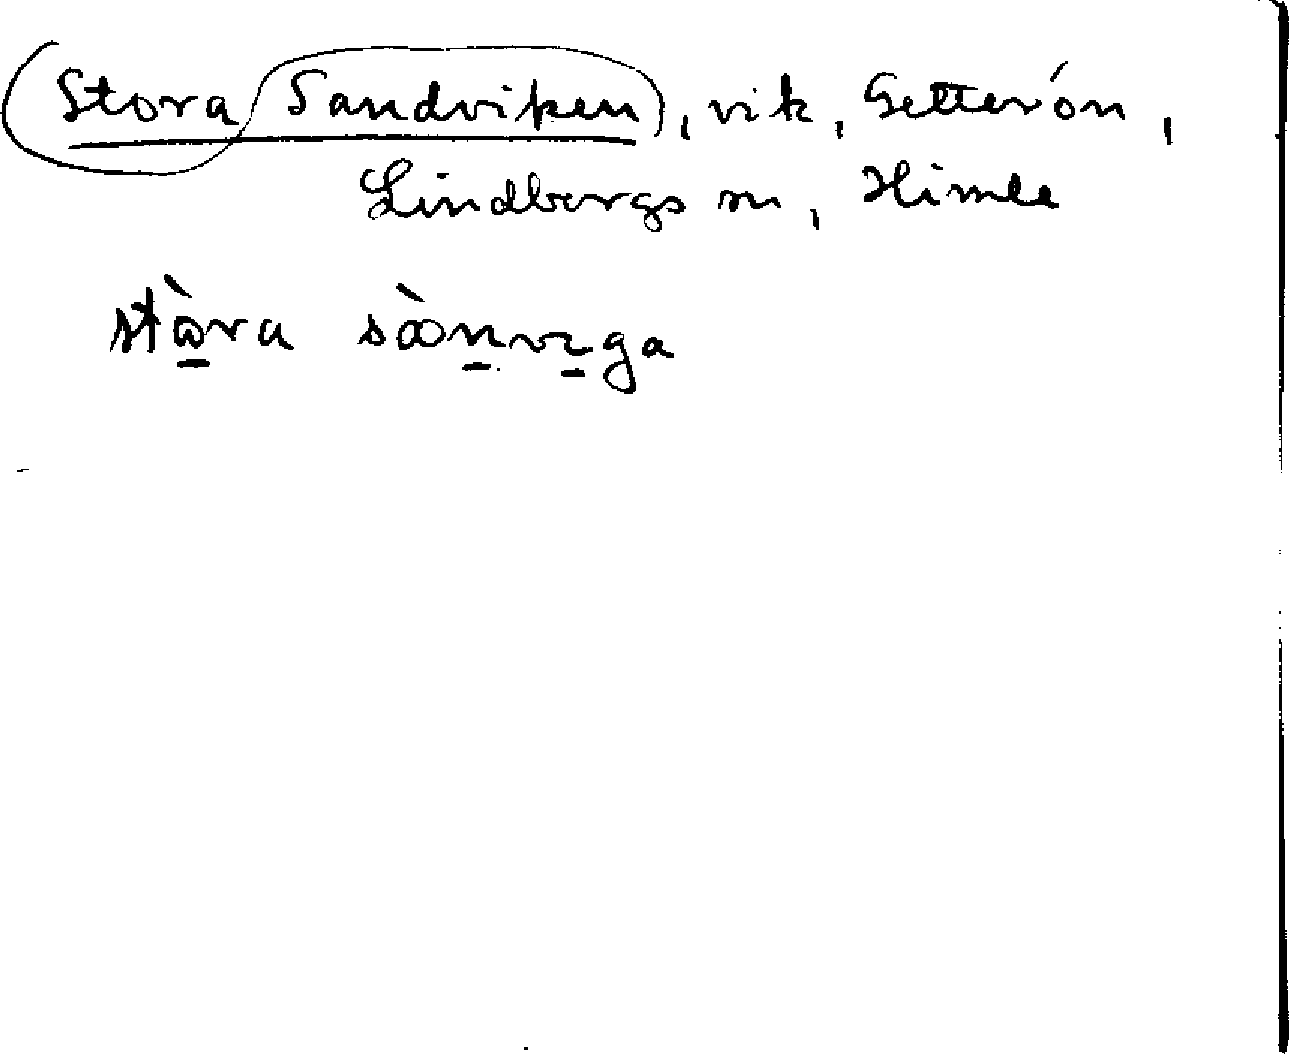 Stora Sandviken, vik, Getterön,
Lindbergs sn, Himle
stɷ̀ra sɑ̀ɷnvɩga